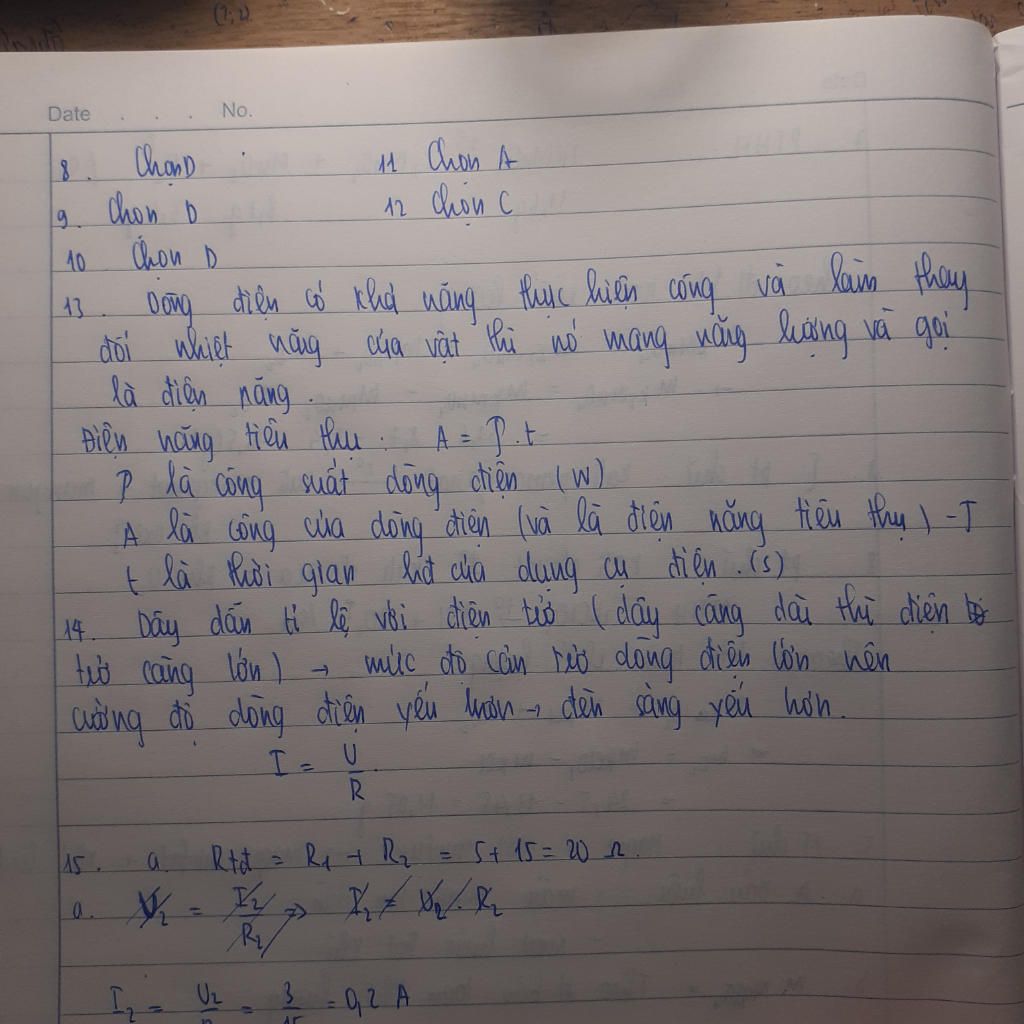 Date . . . No.
8. Chọn D 11 Chọn A
9. Chọn D 12 Chọn C
10 Chọn D
13. Dòng điện có khả năng thực hiện công và làm thay
đổi nhiệt năng của vật thì nó mang năng lượng và gọi
là điện năng.
Điện năng tiêu thụ: A = P.t
P là công suất dòng điện (W)
A là công của dòng điện (và là điện năng tiêu thụ) - J
t là thời gian hđ của dụng cụ điện. (s)
14. Dây dẫn tỉ lệ với điện trở (dây càng dài thì điện
trở càng lớn) → mức độ cản trở dòng điện lớn nên
cường độ dòng điện yếu hơn → đèn sáng yếu hơn.
I = U/R
15. a. Rtđ = R1 + R2 = 5 + 15 = 20 Ω.
a. U2 = I2/R2 => I2 = U2 . R2
I2 = U2/R2 = 3/15 = 0,2 A